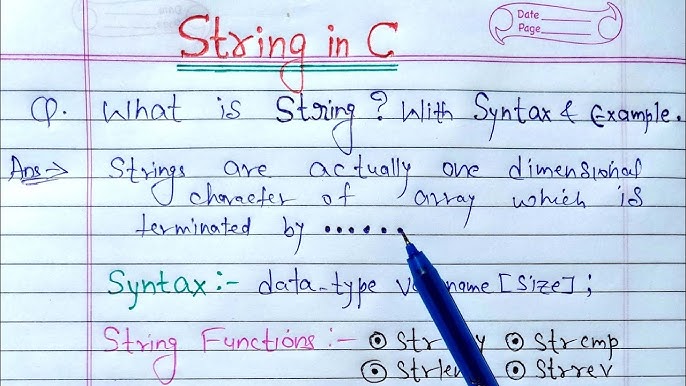 String in C
Date
Page
Q. What is String? With Syntax & Example.
Ans:→ Strings are actually one dimensional
character of array which is
terminated by ......
Syntax:- data-type name [Size];
String Functions:- ⊙ ⊙ Strcmp
⊙ Strlen ⊙ Strrev